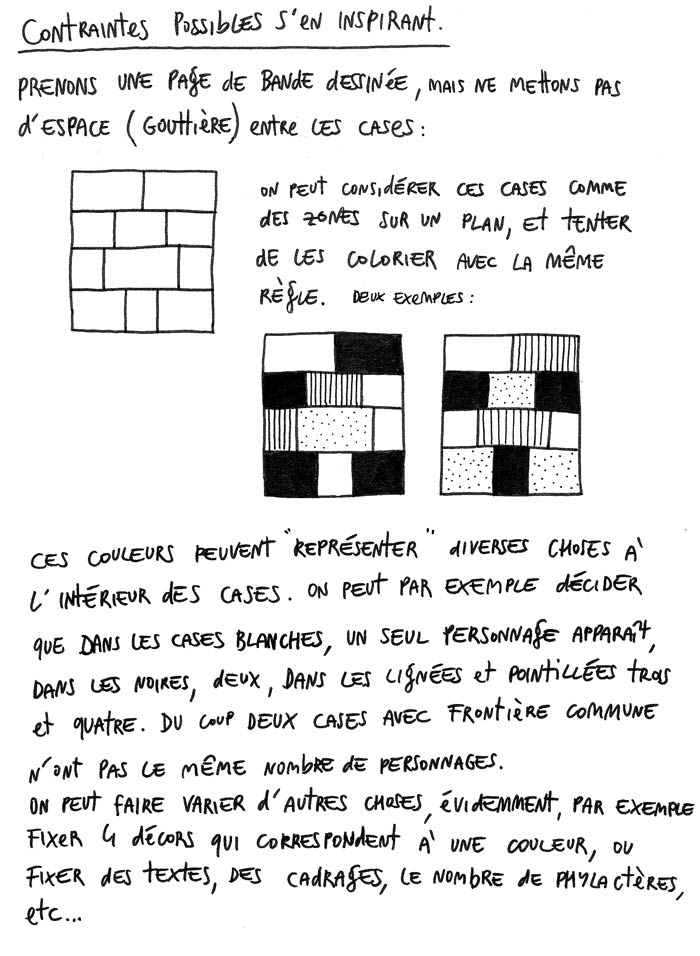 CONTRAINTES POSSIBLES S'EN INSPIRANT.
PRENONS UNE PAGE DE BANDE DESSINÉE, MAIS NE METTONS PAS
D'ESPACE (GOUTTIÈRE) ENTRE LES CASES :
ON PEUT CONSIDÉRER CES CASES COMME
DES ZONES SUR UN PLAN, ET TENTER
DE LES COLORIER AVEC LA MÊME
RÈGLE. DEUX EXEMPLES :
CES COULEURS PEUVENT "REPRÉSENTER" DIVERSES CHOSES À
L'INTÉRIEUR DES CASES. ON PEUT PAR EXEMPLE DÉCIDER
QUE DANS LES CASES BLANCHES, UN SEUL PERSONNAGE APPARAÎT,
DANS LES NOIRES, DEUX, DANS LES LIGNÉES ET POINTILLÉES TROIS
ET QUATRE. DU COUP DEUX CASES AVEC FRONTIÈRE COMMUNE
N'ONT PAS LE MÊME NOMBRE DE PERSONNAGES.
ON PEUT FAIRE VARIER D'AUTRES CHOSES, ÉVIDEMMENT, PAR EXEMPLE
FIXER 4 DÉCORS QUI CORRESPONDENT À UNE COULEUR, OU
FIXER DES TEXTES, DES CADRAGES, LE NOMBRE DE PHYLACTÈRES,
ETC...